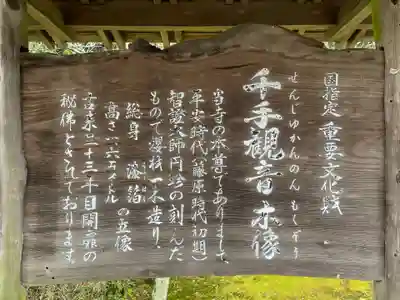 国指定 重要文化財
せんじゅかんのんもくぞう
千手観音木像
当寺の本尊でありまして
平安時代(藤原時代初期)
智證大師円珍の刻んだ
もので櫻材一木造り、
総身 漆箔
高さ二、六メートル の立像
古来三十三年目開扉の
秘佛とされております。